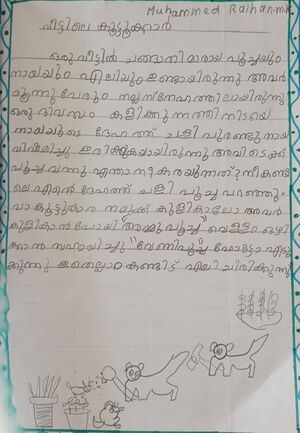 Muhammed Raihan.m.k
വീട്ടിലെ കൂട്ടുക്കാർ
ഒരു വീട്ടിൽ ചങ്ങാതിമാരായ പൂച്ചയും
നായയും എലിയും ഉണ്ടായിരുന്നു അവർ
മൂന്നു പേരും നല്ല സ്നേഹത്തിലായിരുന്നു
ഒരു ദിവസം കളിക്കുന്നത്തിനിടയെ
നായയുടെ ദേഹത്ത് ചളി പുരണ്ടു നായ
വിഷമിച്ചു ഇരിക്കുകയായിരുന്നു അവിടെക്ക്
പൂച്ച വന്നു എന്താ നീ കരയുന്നത് നീ കണ്ടി
ലെ എന്റെ ദേഹത്ത് ചളി പൂച്ച പറഞ്ഞു.
വാ കൂട്ടുകാര നമുക്ക് കുളികാലോ അവർ
കുളികാൻ പോയി അമ്മുപൂച്ച വെള്ളം ഒഴി
ക്കാൻ സഹായിച്ചു വേണിപൂച്ച ഫോട്ടോ എടു
ക്കുന്നു ഇതെല്ലാം കണ്ടിട്ട് എലി ചിരിക്കുന്നു